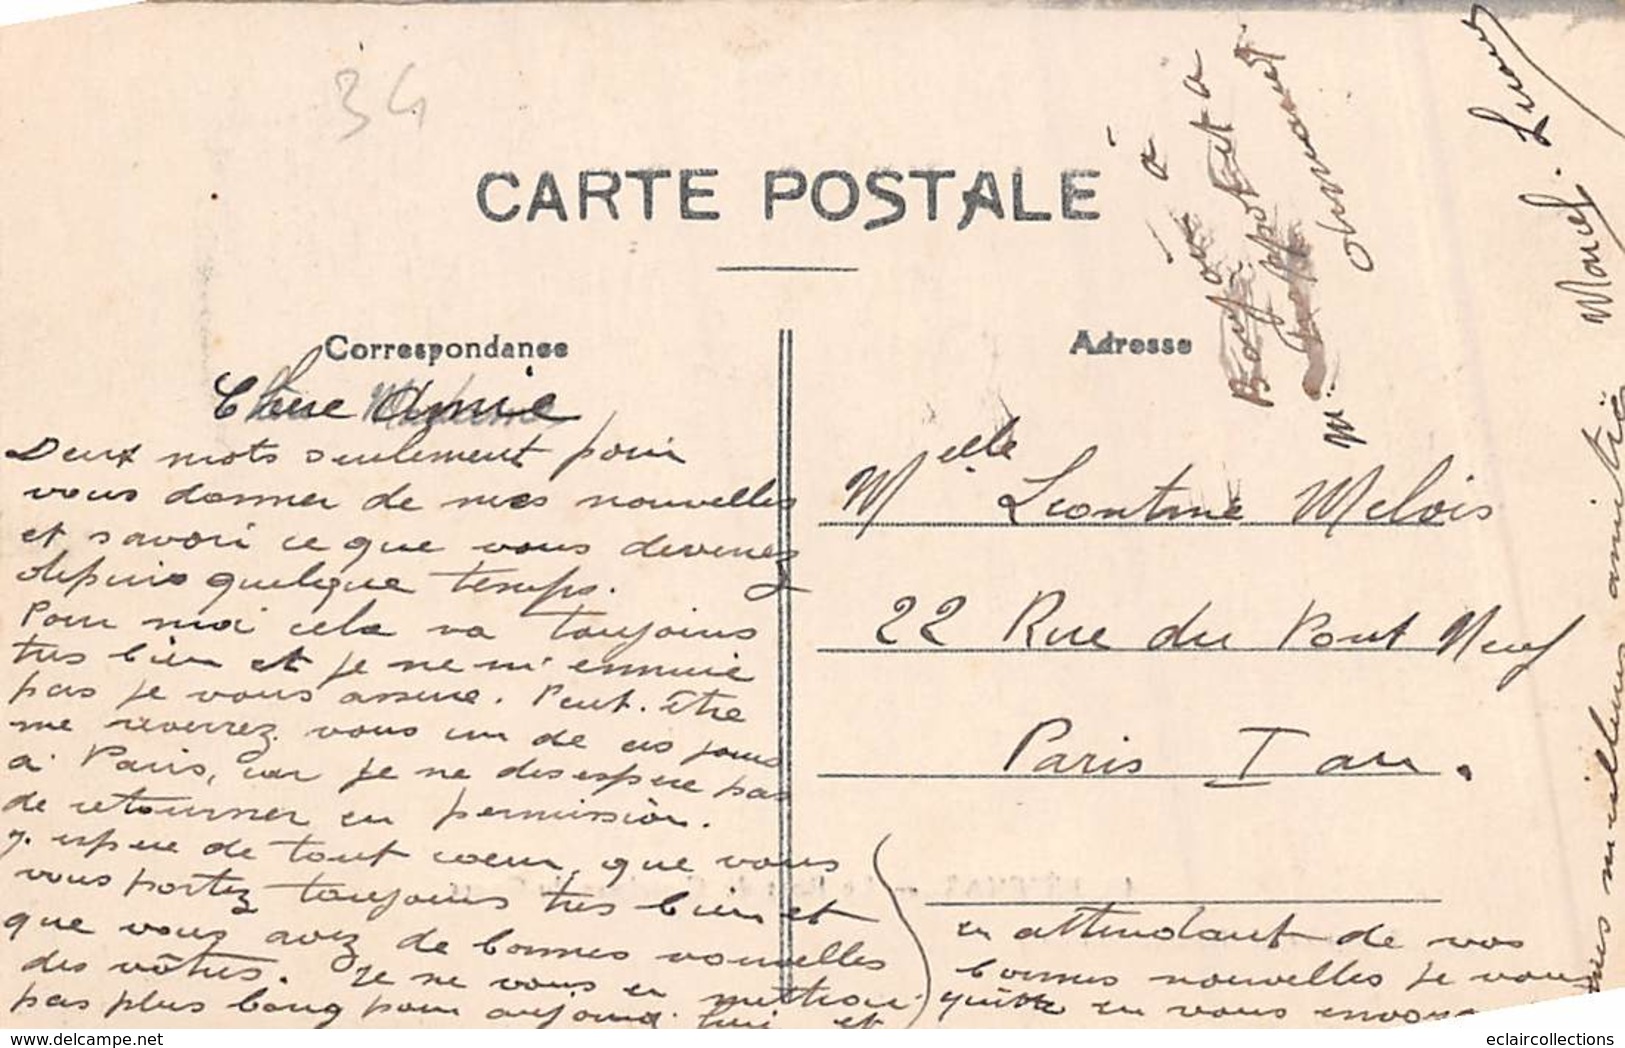 34
CARTE POSTALE
Correspondance
Chère Amie
Deux mots seulement pour
vous donner de mes nouvelles
et savoir ce que vous devenez
depuis quelque temps.
Pour moi cela va toujours
très bien et je ne m'ennuie
pas je vous assure. Peut-être
me reverrez vous un de ces jours
à Paris, car je ne desespere pas
de retourner en permission.
J'espere de tout coeur, que vous
vous portez toujours très bien et
que vous avez de bonnes nouvelles
des vôtres. Je ne vous en
pas plus long pour aujourd'hui et
en attendant de vos
bonnes nouvelles je vous
quitte en vous envoya
mes meilleures amitiés
Marcel
Adresse
Melle Leontine Melois
22 Rue du Pont Neuf
Paris I arr.
eclaircollections